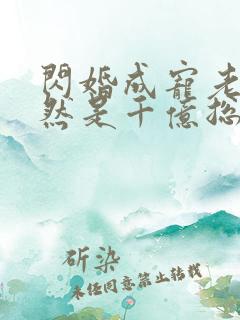 閃婚成寵老
然是千億總
斫染
未经同意禁止转载